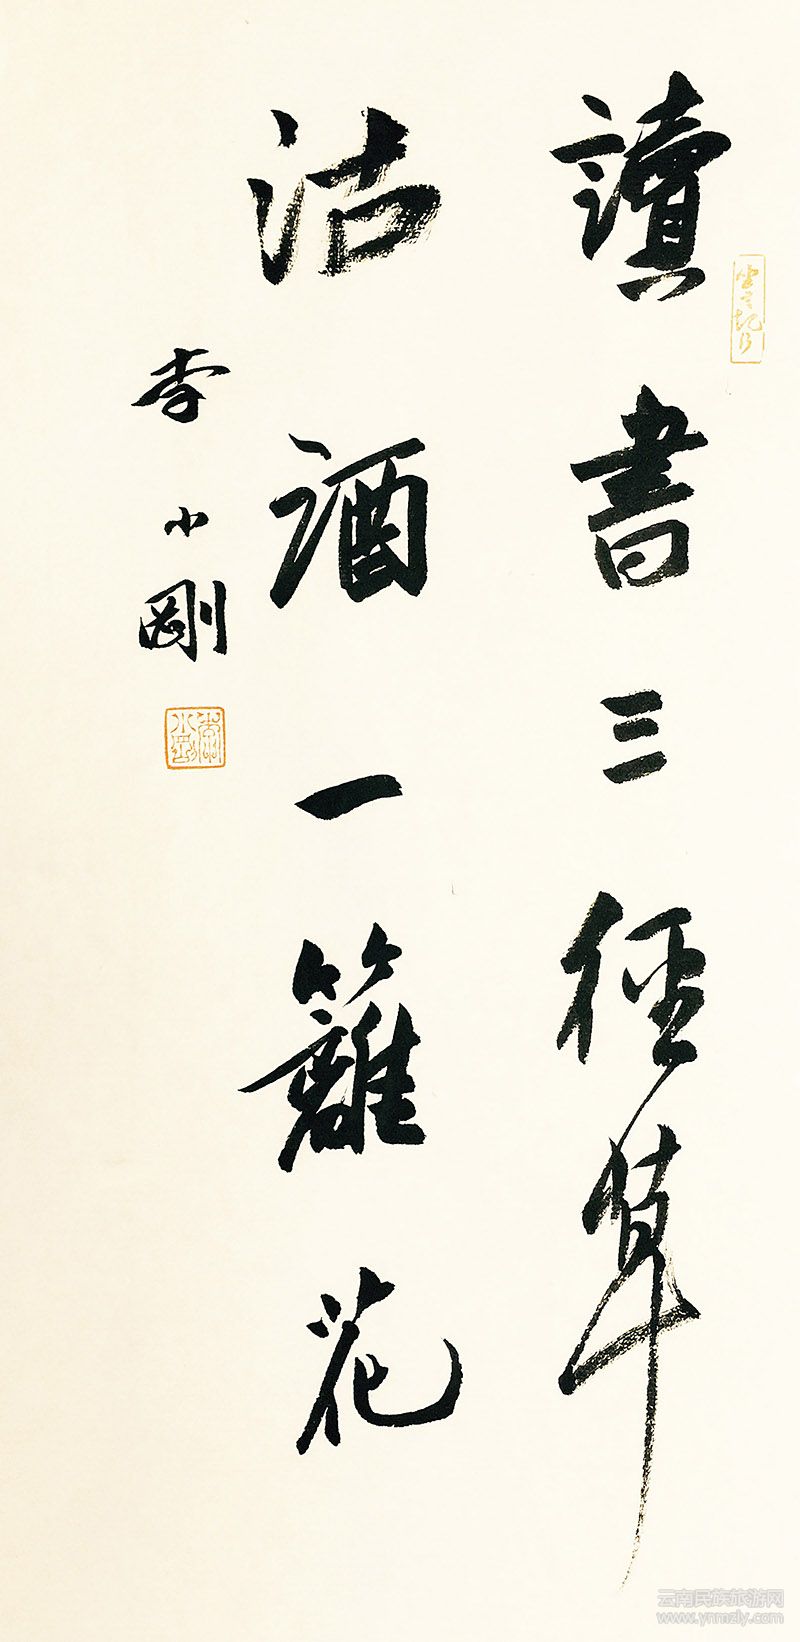 讀書三徑草
沽酒一籬花
李小剛
云南民族旅游网
www.ynmzly.com